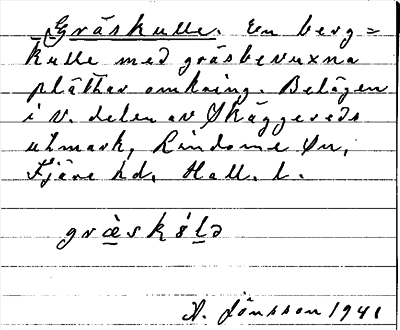 Gräskulle. En berg=
kulle med gräsbevuxna
plättar omkring. Belägen
i v. delen av Skäggereds
utmark, Lindome sn,
Fjäre hd, Hall. l.
græ̀skɵ́lə
A. Jönsson 1941